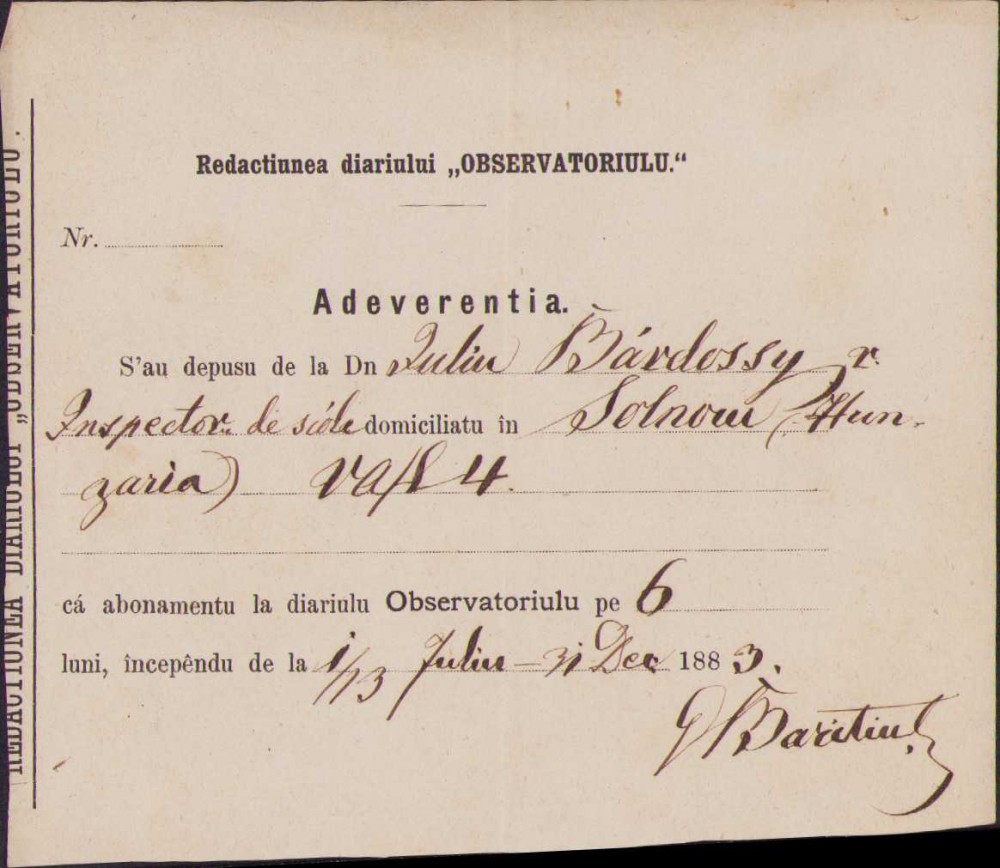 REDACTIUNEA DIARIULUI „OBSERVATORIULU.
Redactiunea diariului „OBSERVATORIULU.“
Nr.
Adeverentia.
S'au depusu de la Dn Juliu Bárdossy r.
Inspector. de scóle domiciliatu în Solnocu (Hun-
garia) vafl 4.
cá abonamentu la diariulu Observatoriulu pe 6
luni, începêndu de la 1/13 Juliu – 31 Dec 1883.
G Baritiu